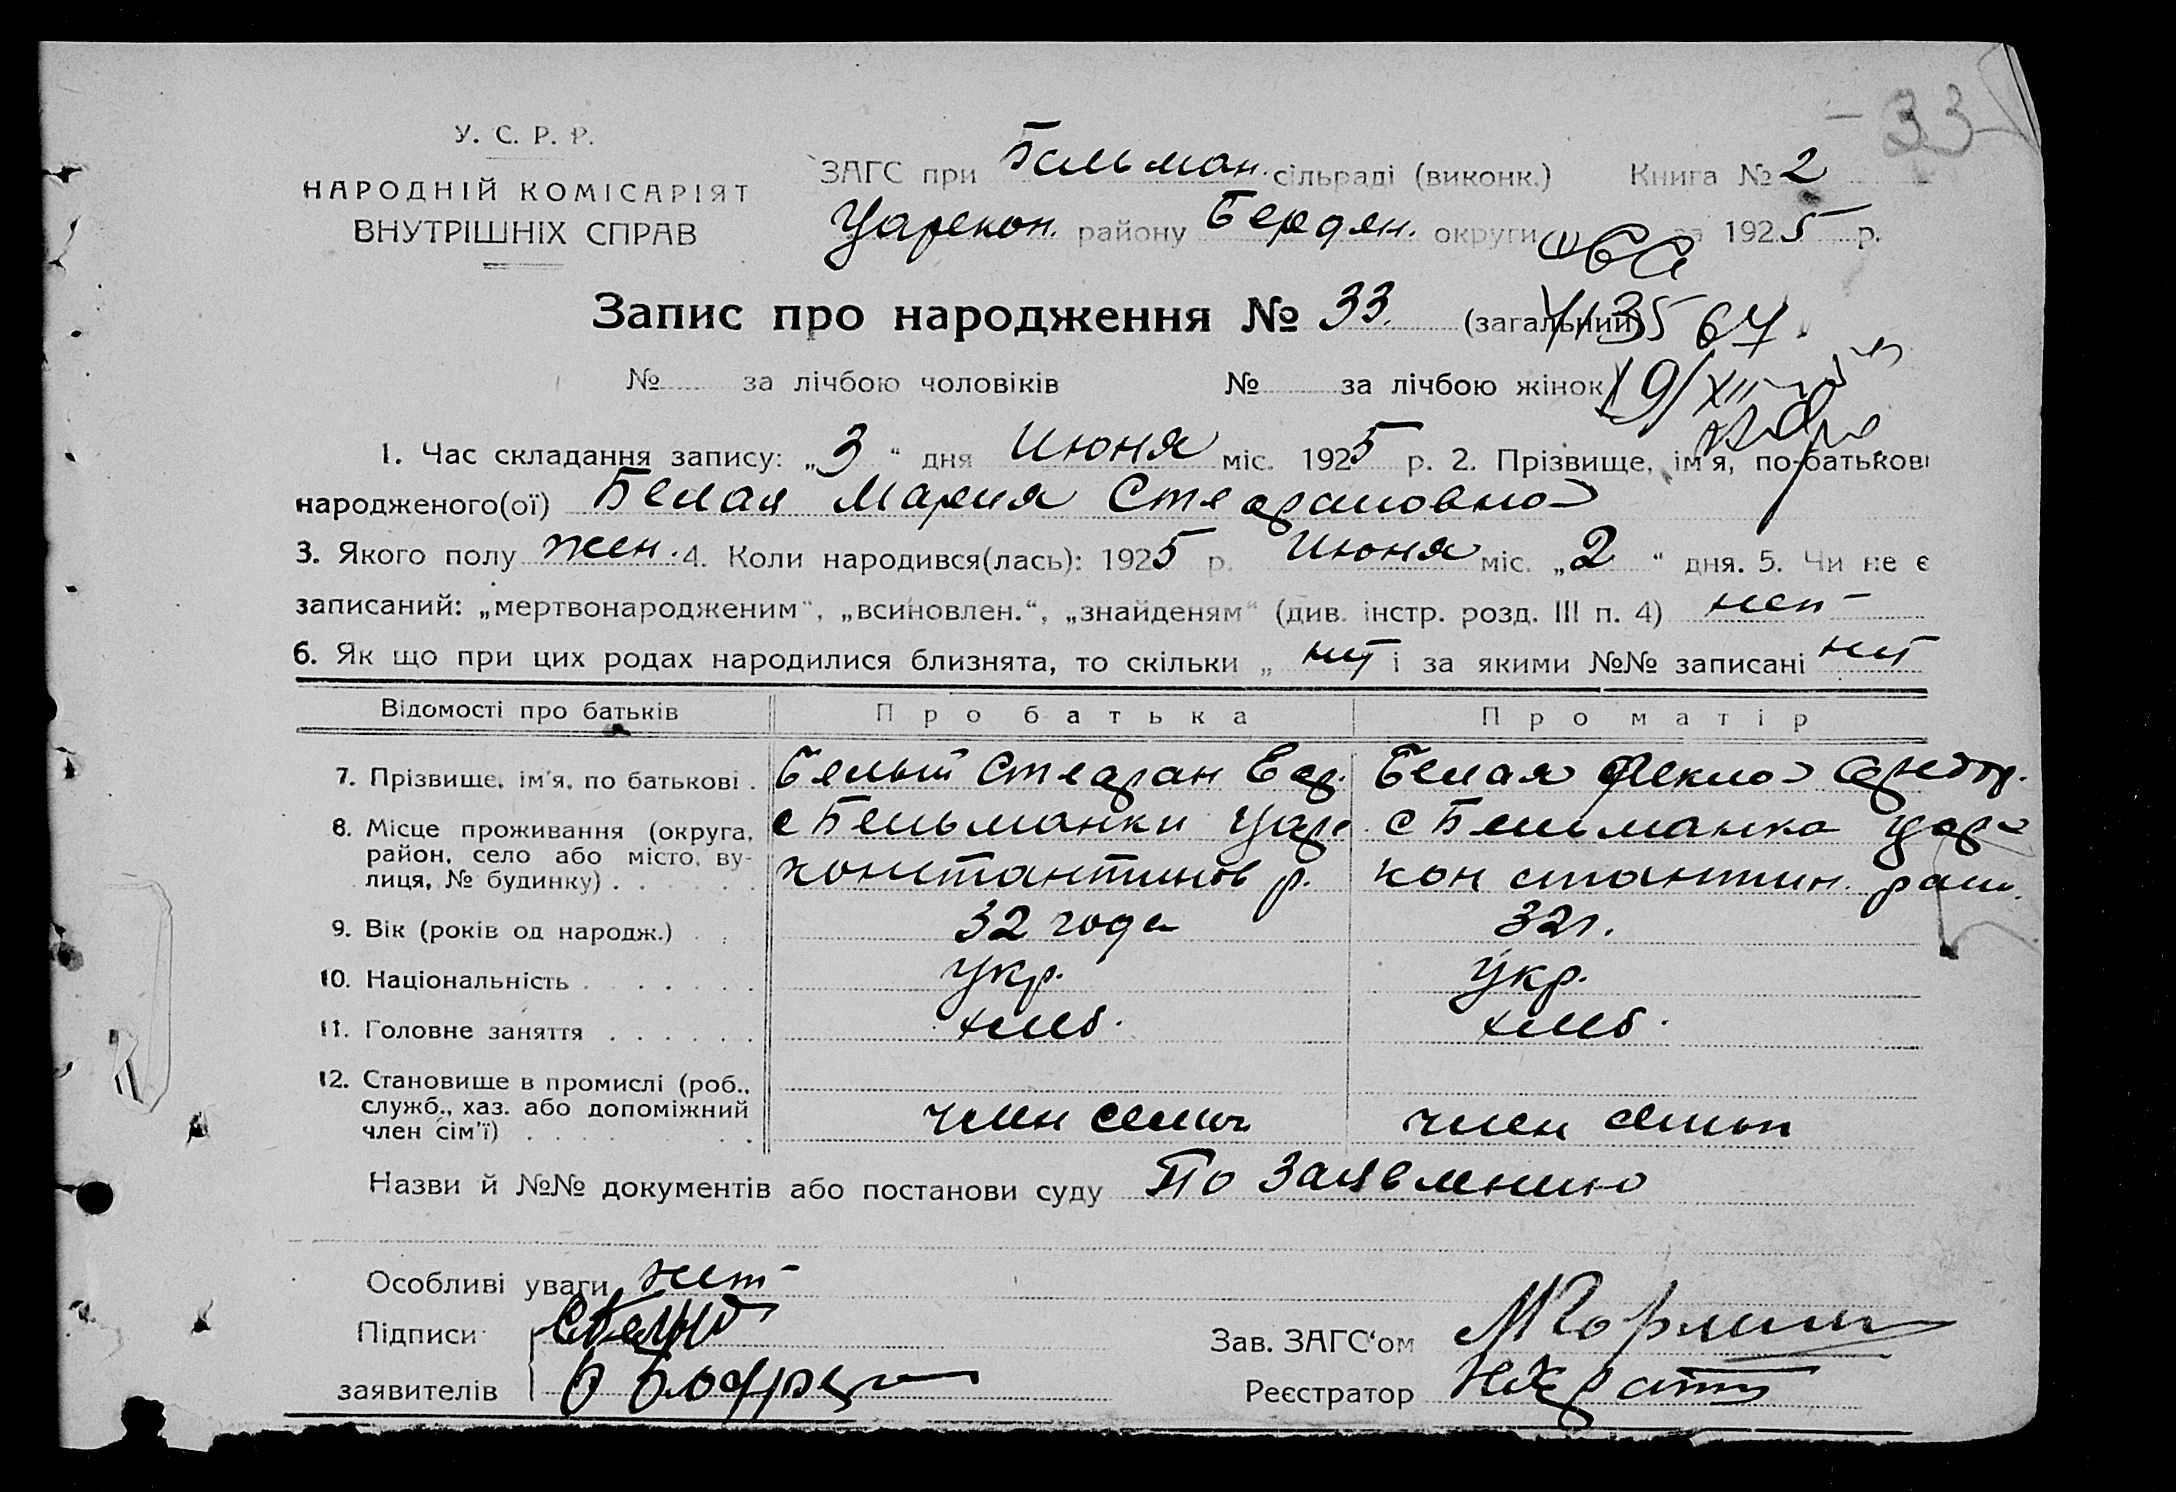 - 33
У. С. Р. Р.
НАРОДНІЙ КОМІСАРІЯТ
ВНУТРІШНІХ СПРАВ
ЗАГС при Бельман. сільраді (виконк.) Книга № 2
Царекон. району Бердян. округи за 1925 р.
Запис про народження № 33. (загальний)
№ за лічбою чоловіків № за лічбою жінок
19/XII
1. Час складання запису: „3“ дня Июня міс. 1925 р. 2. Прізвище, ім'я, по-батькові
народженого(ої) Белая Мария Стефановна
3. Якого полу жен. 4. Коли народився(лась): 1925 р. Июня міс. „2“ дня. 5. Чи не є
записаний: „мертвонародженим“, „всиновлен.“, „знайденям“ (див. інстр. розд. III п. 4) нет
6. Як що при цих родах народилися близнята, то скільки „ нет і за якими №№ записані нет
Відомості про батьків Про батька Про матір
7. Прізвище, ім'я, по батькові . Белый Стефан Еф. Белая Фекла
8. Місце проживання (округа, район, село або місто, вулиця, № будинку) . с Бельманки Царе константинов р. с Бельманка Царе константин. райн.
9. Вік (років од народж.) . 32 года 32 г.
10. Національність . укр. укр.
11. Головне заняття . хлеб. хлеб.
12. Становище в промислі (роб., служб., хаз. або допоміжний член сім'ї) . член семьи член семьи
Назви й №№ документів або постанови суду По заявлению
Особливі уваги нет
Підписи СБелый Зав. ЗАГС'ом
заявителів Реєстратор